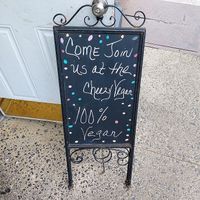 Come Join
us at the
Cheezy Vegan
100%
Vegan